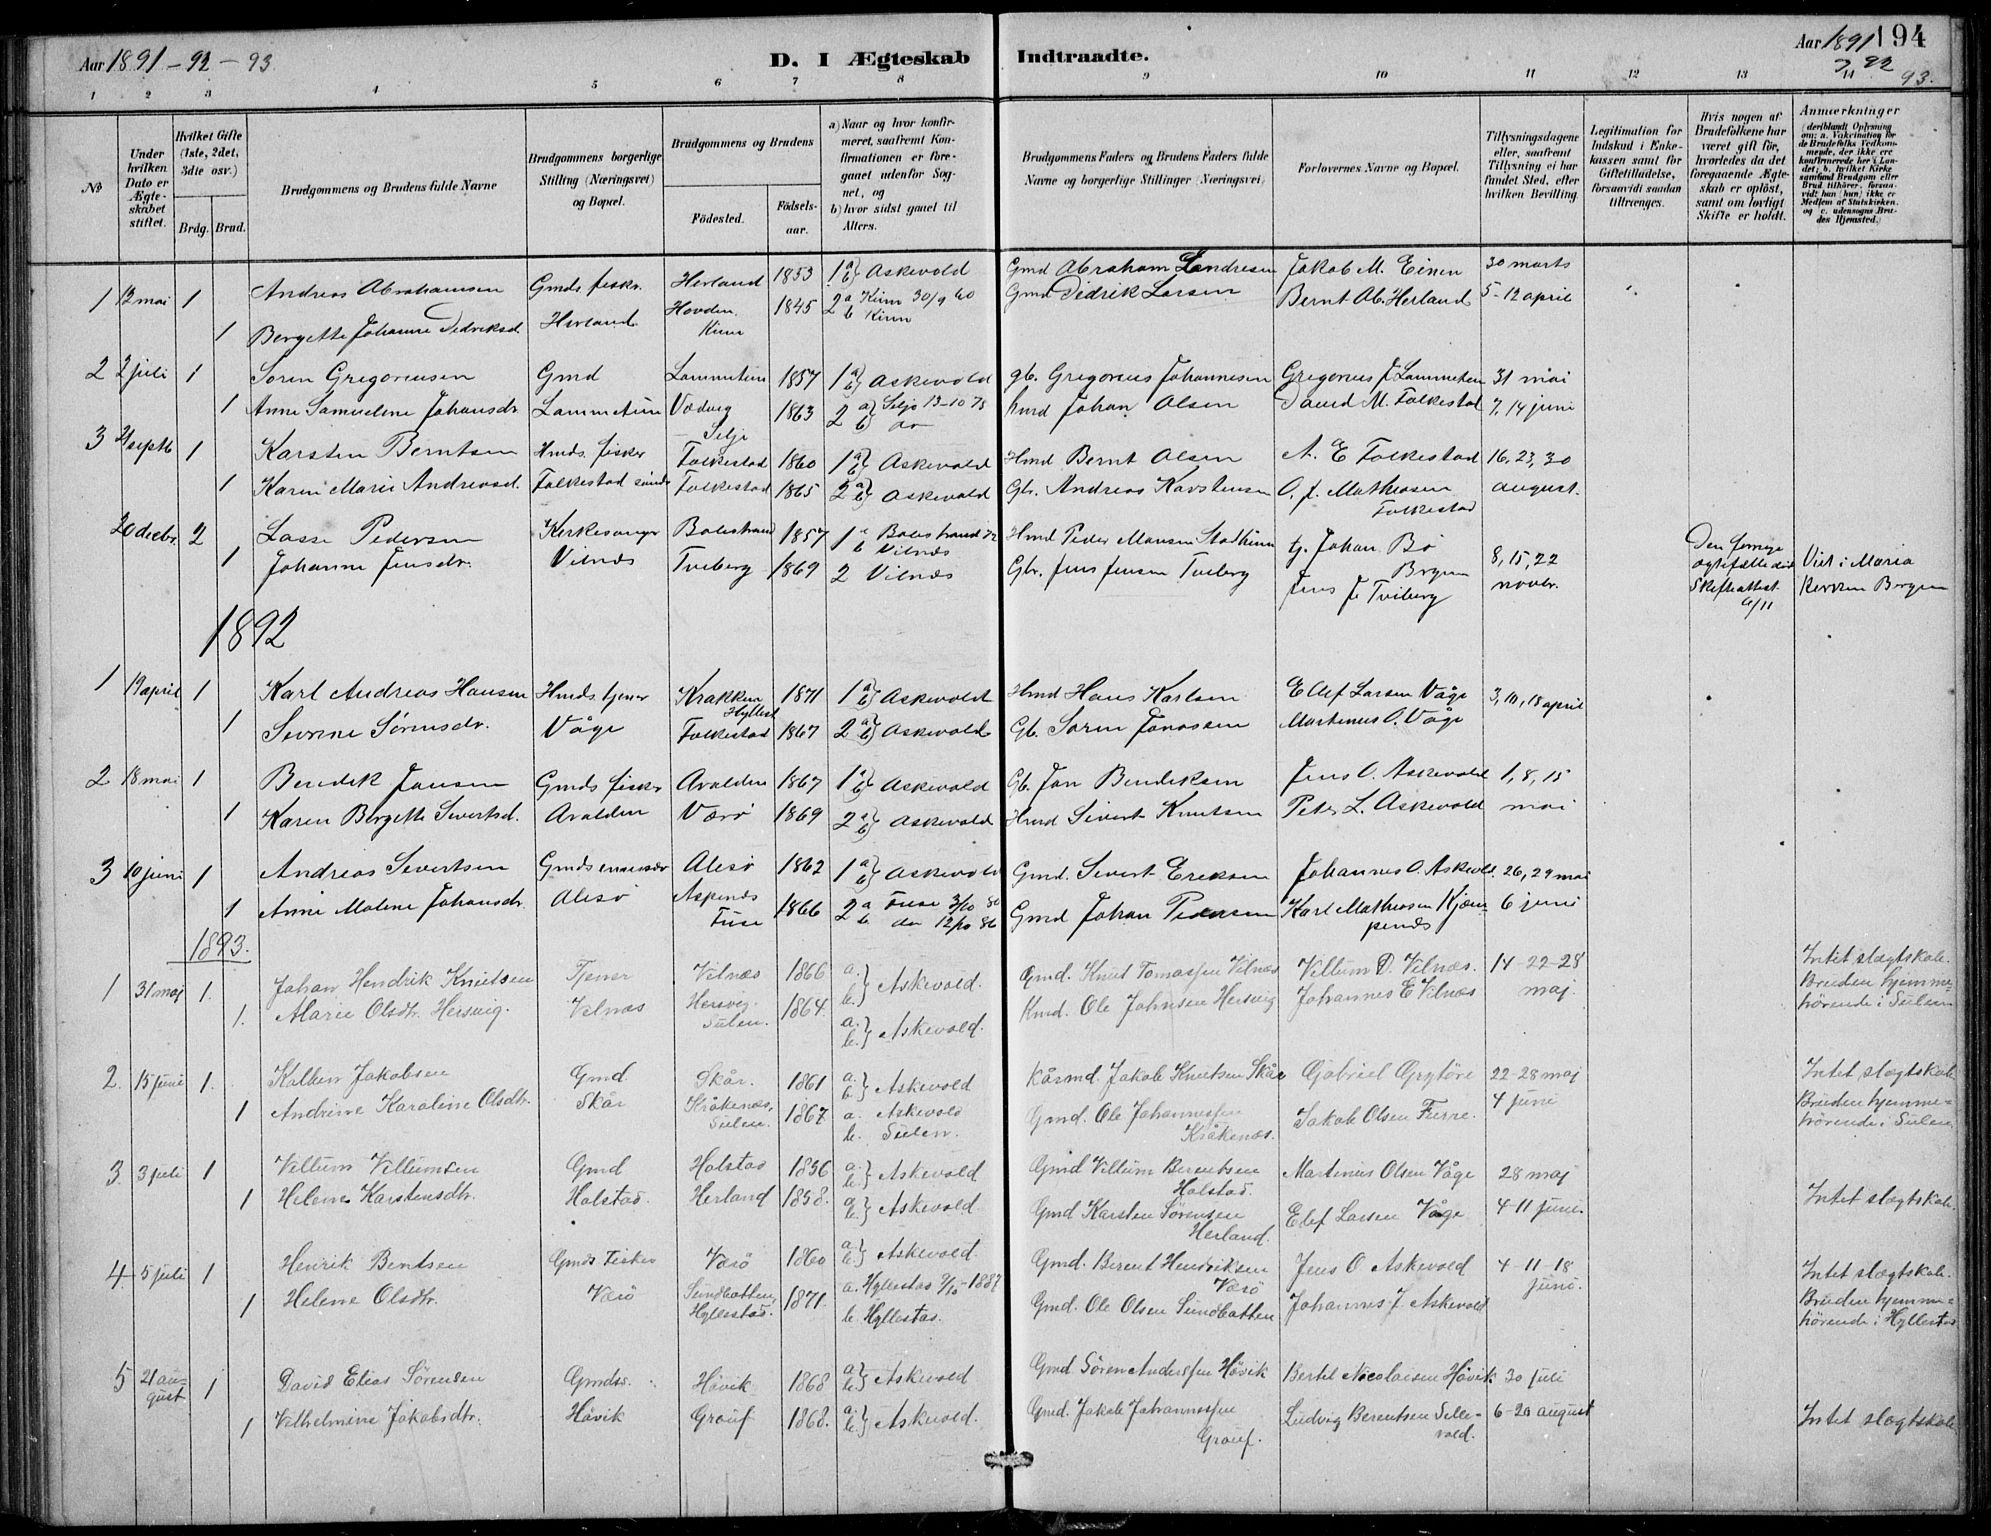 Aar 1891-92-93
D. I Ægteskab Indtraadte.
Aar 1891 194
92
93.
1 2 3 4 5 6 7 8 9 10 11 12 13 14
No
Under hvilken Dato er Ægteskabet stiftet.
Hvilket Gifte (1ste, 2det, 3die osv.)
Brdg. Brud.
Brudgommens og Brudens fulde Navne
Brudgommens borgerlige Stilling (Næringsvei) og Bopæl.
Brudgommens og Brudens
Fødested.
Fødselsaar.
a) Naar og hvor konfirmeret, saafremt Konfirmationen er foregaaet udenfor Sognet, og
b) hvor sidst gaaet til Alters.
Brudgommens Faders og Brudens Faders fulde Navne og borgerlige Stillinger (Næringsvei)
Forlovernes Navne og Bopæl.
Tillysningsdagene eller, saafremt Tillysning ei har fundet Sted, efter hvilken Bevilling.
Legitimation for Indskud i Enkekassen samt for Giftetilladelse, forsaavidt saadan tiltrænges.
Hvis nogen af Brudefolkene har været gift før, hvorledes da det foregaaende Ægteskab er opløst, samt om lovligt Skifte er holdt.
Anmærkninger (deriblandt Oplysning om: a. Vakcination for de Brudefolks Vedkommende, der ikke ere konfirmerede her i Landet; b. hvilket Kirkesamfund Brudgom eller Brud tilhører, forsaavidt han (hun) ikke er Medlem af Statskirken, og c. udensogns Brudes Hjemsted.)
1 12 mai 1 Andreas Abrahamsen Gmds. fisker Herland 1853 1 a b} Askevold Gmd Abraham Landresen Jakob M. Einen 30 marts
1 Bergette Johanne Didriksd. Herland Hovden Kinn 1845 2 a Kinn 30/9 60 b Kinn Gmd Didrik Larsen Bernt Ab. Herland 5-12 april
2 2 juli 1 Søren Gregoriusen Gmd Lammetun 1857 1 a b} Askevold gb. Gregorius Johannesen Gregorius J Lammetun 31 mai
1 Anne Samueline Johansdr. Lammetun Vedvig Selje 1863 2 a b} Selje 13-10 78 do hmd Johan Olsen David M. Folkestad 7, 14 juni
3 septb 1 Karsten Berntsen Hmds. fisker Folkestad 1860 1 a b} Askevold Hmd Bernt Olsen A. E Folkestad 16, 23, 30
1 Karen Marie Andreasd. Folkestad Folkestad 1865 2 a b} Askevold Gb. Andreas Karstensen O. J. Mathiasen Folkestad august.
20 decbr. 2 Lasse Pedersen Kirkesanger Balestrand 1857 1 a Balestrand 72 b Vilnæs Hmd Peder Monsen Stadheim tj. Johan Bø Bergen 8, 15, 22 Den forrige ægtefælle død Viet i Maria
1 Johanne Jensdr. Vilnæs Tviberg 1869 2 Vilnæs Gbr. Jens Jensen Tviberg Jens J. Tviberg novbr. Skifteattest 6/11 Kirken Bergen
1892
1 19 april 1 Karl Andreas Hansen Hmds tjener Krakken Hyllest 1871 1 a b} Askevold Hmd Hans Karlsen Elef Larsen Våge 3, 10, 18 april
1 Severine Sørensdr. Våge Folkestad 1867 2 a b} Askevold Gb. Søren Jonassen Martinus O. Våge
2 18 mai 1 Bendik Jansen Gmds fisker Aralden 1867 1 a b} Askevold Gb. Jan Bendiksen Jens O. Askevold 1, 8, 15
1 Karen Bergette Sivertsd. Aralden Værø 1869 2 a b} Askevold Hmd Sivert Knutsen Peter L. Askevold mai
3 10 juni 1 Andreas Sivertsen Gmds Alesø 1862 1 a b} Askevold Gmd. Sivert Eriksen Johannes O. Askevold. 26, 29 mai
1 Anne Malene Johansdr. Alesø Aspenæs Fuse 1866 2 a Fuse 3/10 80 b do 12/10 86 Gmd Johan Pedersen Karl Mathiasen Kjempenæs 6 juni
1893.
1 31 maj 1. Johan Hendrik Knutsen Tjener Vilnæs 1866 a. b.} Askevold. Gmd. Knut Tomassen Vilnæs Villum D. Vilnæs. 14-22-28 Intet slægtskab.
1. Marie Olsdtr. Hersvig. Vilnæs Hersvig. Sulen. 1864. a. b.} Askevold. Kmd. Ole Johnsen Hersvig Johannes E Vilnæs maj. Bruden hjemmehørende i Sulen
2. 15 juni 1. Kolben Jakobsen Gmd. Skår. 1861 a. b.} Askevold kårmd. Jakob Knutsen Skår Gabriel Grytöre 22-28 maj Intet slægtskab
1 Andrine Karoline Olsdtr. Skår Kråkenæs, Sulen. 1867. a. Askevold b. Sulen. Gmd. Ole Johannessen Kråkenæs. Jakob Olsen Furre. 4 juni Bruden hjemmehørende i Sulen
3. 3 juli 1 Villum Villumsen Gmd Holstad 1836 a. b.} Askevold Gmd Villum Berentsen Holstad. Martinus Olsen Våge 28 maj
1 Helene Karstensdtr. Holstad. Herland 1858. a. b.} Askevold. Gmd Karsten Sørensen Herland. Elef Larsen Våge 4-11 juni. Intet slægtskab.
4. 5 juli 1 Henrik Bentsen Gmds Fisker Værö 1860 a. b.} Askevold. Gmd. Berent Hendriksen Værö Jens O Askevold 4-11-18 Intet slægtskab.
1 Helene Olsdtr. Værö Sundbotten, Hyllestad. 1871 a. Hyllestad 9/10-1887 b. Hyllestad. Gmd. Ole Olsen Sundbotten Johannes J. Askevold juni. Bruden hjemmehørende i Hyllestad
5 21 august 1 David Elias Sörensen Gmdss. Håvik 1868 a. b.} Askevold Gmd Sören Anderssen Håvik Bertel Nicolaisen Håvik 30 juli
1 Vilhelmine Jakobsdtr. Håvik Grouf 1868. a. b.} Askevold. Gmd. Jakob Johannessen Grouf. Ludvig Berentsen Sellevold. 6-20 august Intet slægtskab